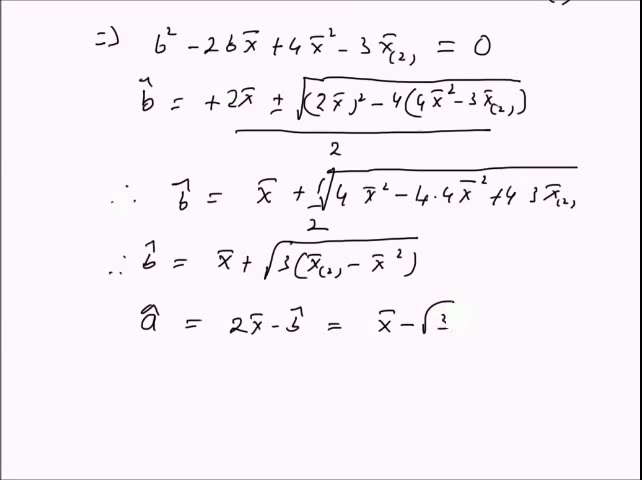 ⇒ b² − 2bx̄ + 4x̄² − 3x̄₍₂₎ = 0
b̂ = +2x̄ ± √((2x̄)² − 4(4x̄² − 3x̄₍₂₎)) / 2
∴ b̂ = x̄ + 1/2 √(4x̄² − 4·4x̄² + 4 3x̄₍₂₎)
∴ b̂ = x̄ + √(3(x̄₍₂₎ − x̄²))
â = 2x̄ − b̂ = x̄ − √3